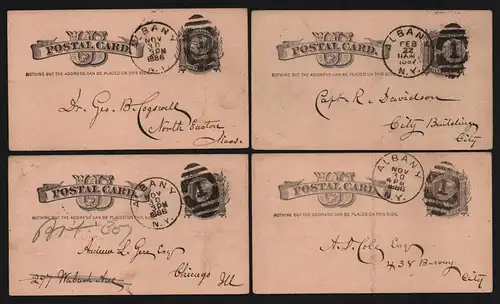 POSTAL CARD.
NOTHING BUT THE ADDRESS CAN BE PLACED ON THIS SIDE.
ALBANY
NOV
30
PM
1886
N.Y.
Dr. Geo. B. Cogswell
North Easton
Mass.
POSTAL CARD.
NOTHING BUT THE ADDRESS CAN BE PLACED ON THIS SIDE.
ALBANY
FEB
22
11 AM
1887
N.Y.
1
Capt R. Davidson
City Building
City
POSTAL CARD.
NOTHING BUT THE ADDRESS CAN BE PLACED ON THIS SIDE.
ALBANY
NOV
30
PM
1886
N.Y.
1
Andrew L. Gere Esq
297 Wabash Ave
Chicago
Ill
POSTAL CARD.
NOTHING BUT THE ADDRESS CAN BE PLACED ON THIS SIDE.
ALBANY
NOV
30
4 PM
1886
N.Y.
1
Cole Esq
438 B.way
City